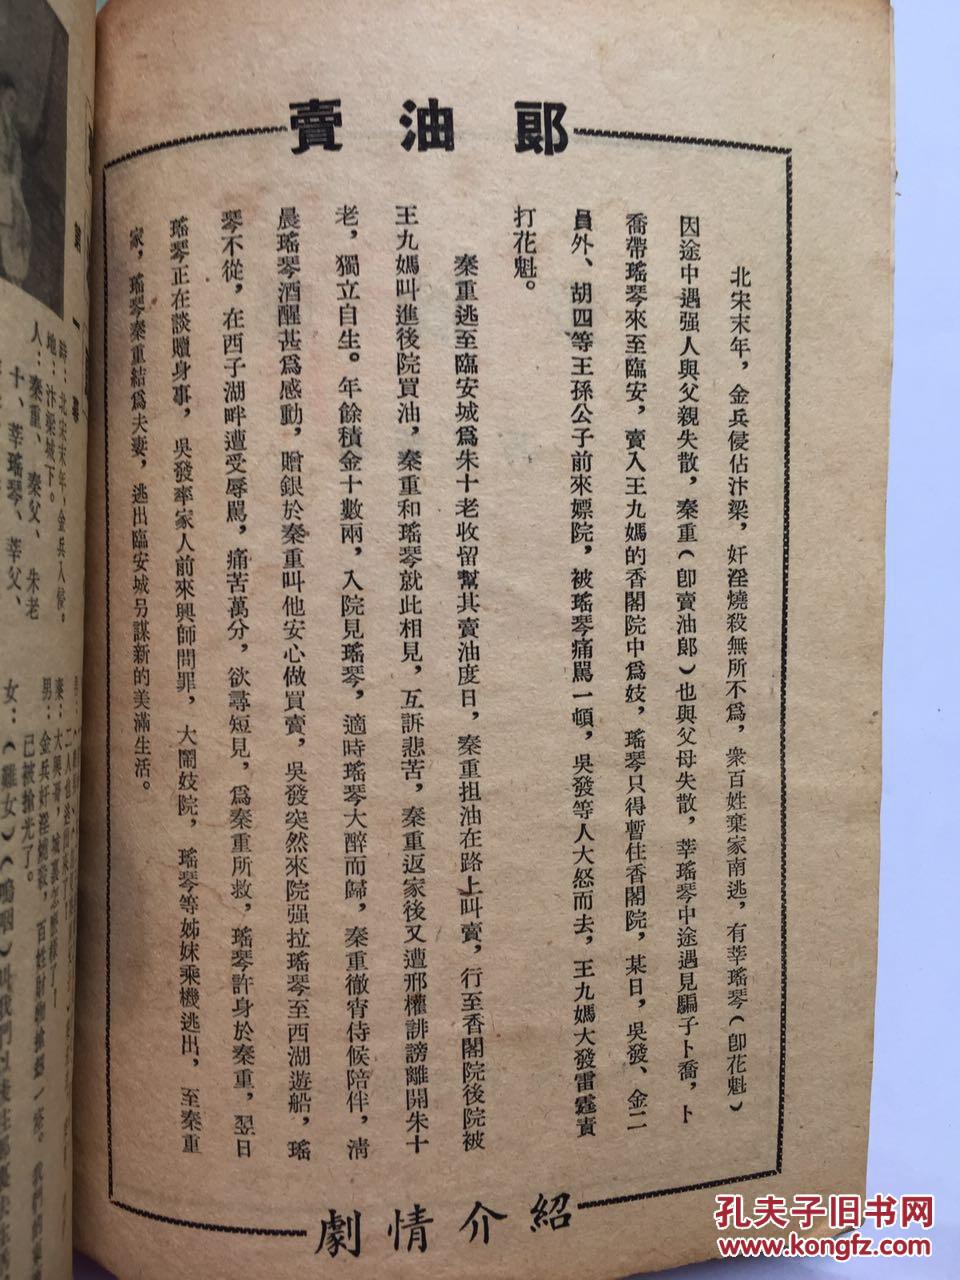 郎油賣
北宋末年，金兵侵佔汴梁，奸淫燒殺無所不爲，衆百姓棄家南逃，有莘瑤琴（卽花魁）
因途中遇强人與父親失散，秦重（卽賣油郎）也與父母失散，莘瑤琴中途遇見騙子卜喬，卜
喬帶瑤琴來至臨安，賣入王九媽的香閣院中爲妓，瑤琴只得暫住香閣院，某日，吳發、金二
員外、胡四等王孫公子前來嫖院，被瑤琴痛駡一頓，吳發等人大怒而去，王九媽大發雷霆責
打花魁。
秦重逃至臨安城爲朱十老收留幫其賣油度日，秦重担油在路上叫賣，行至香閣院後院被
王九媽叫進後院買油，秦重和瑤琴就此相見，互訴悲苦，秦重返家後又遭邢權誹謗離開朱十
老，獨立自生。年餘積金十數兩，入院見瑤琴，適時瑤琴大醉而歸，秦重徹宵侍候陪伴，淸
晨瑤琴酒醒甚爲感動，贈銀於秦重叫他安心做買賣，吳發突然來院强拉瑤琴至西湖遊船，瑤
琴不從，在西子湖畔遭受辱駡，痛苦萬分，欲尋短見，爲秦重所救，瑤琴許身於秦重，翌日
瑤琴正在談贖身事，吳發率家人前來興師問罪，大鬧妓院，瑤琴等姊妹乘機逃出，至秦重
家，瑤琴秦重結爲夫妻，逃出臨安城另謀新的美滿生活。
紹介情劇
第一幕
時：北宋末年，金兵入侵。
地：汴梁城下。
人：秦重、秦父、朱老
十、莘瑤琴、莘父、
秦：大興哥，城裏怎麽樣了！
男：金兵奸淫燒殺，百姓財物搶擄一空。我們的
已被搶光了。
女：（難女）（嗚咽）
孔夫子旧书网
www.kongfz.com